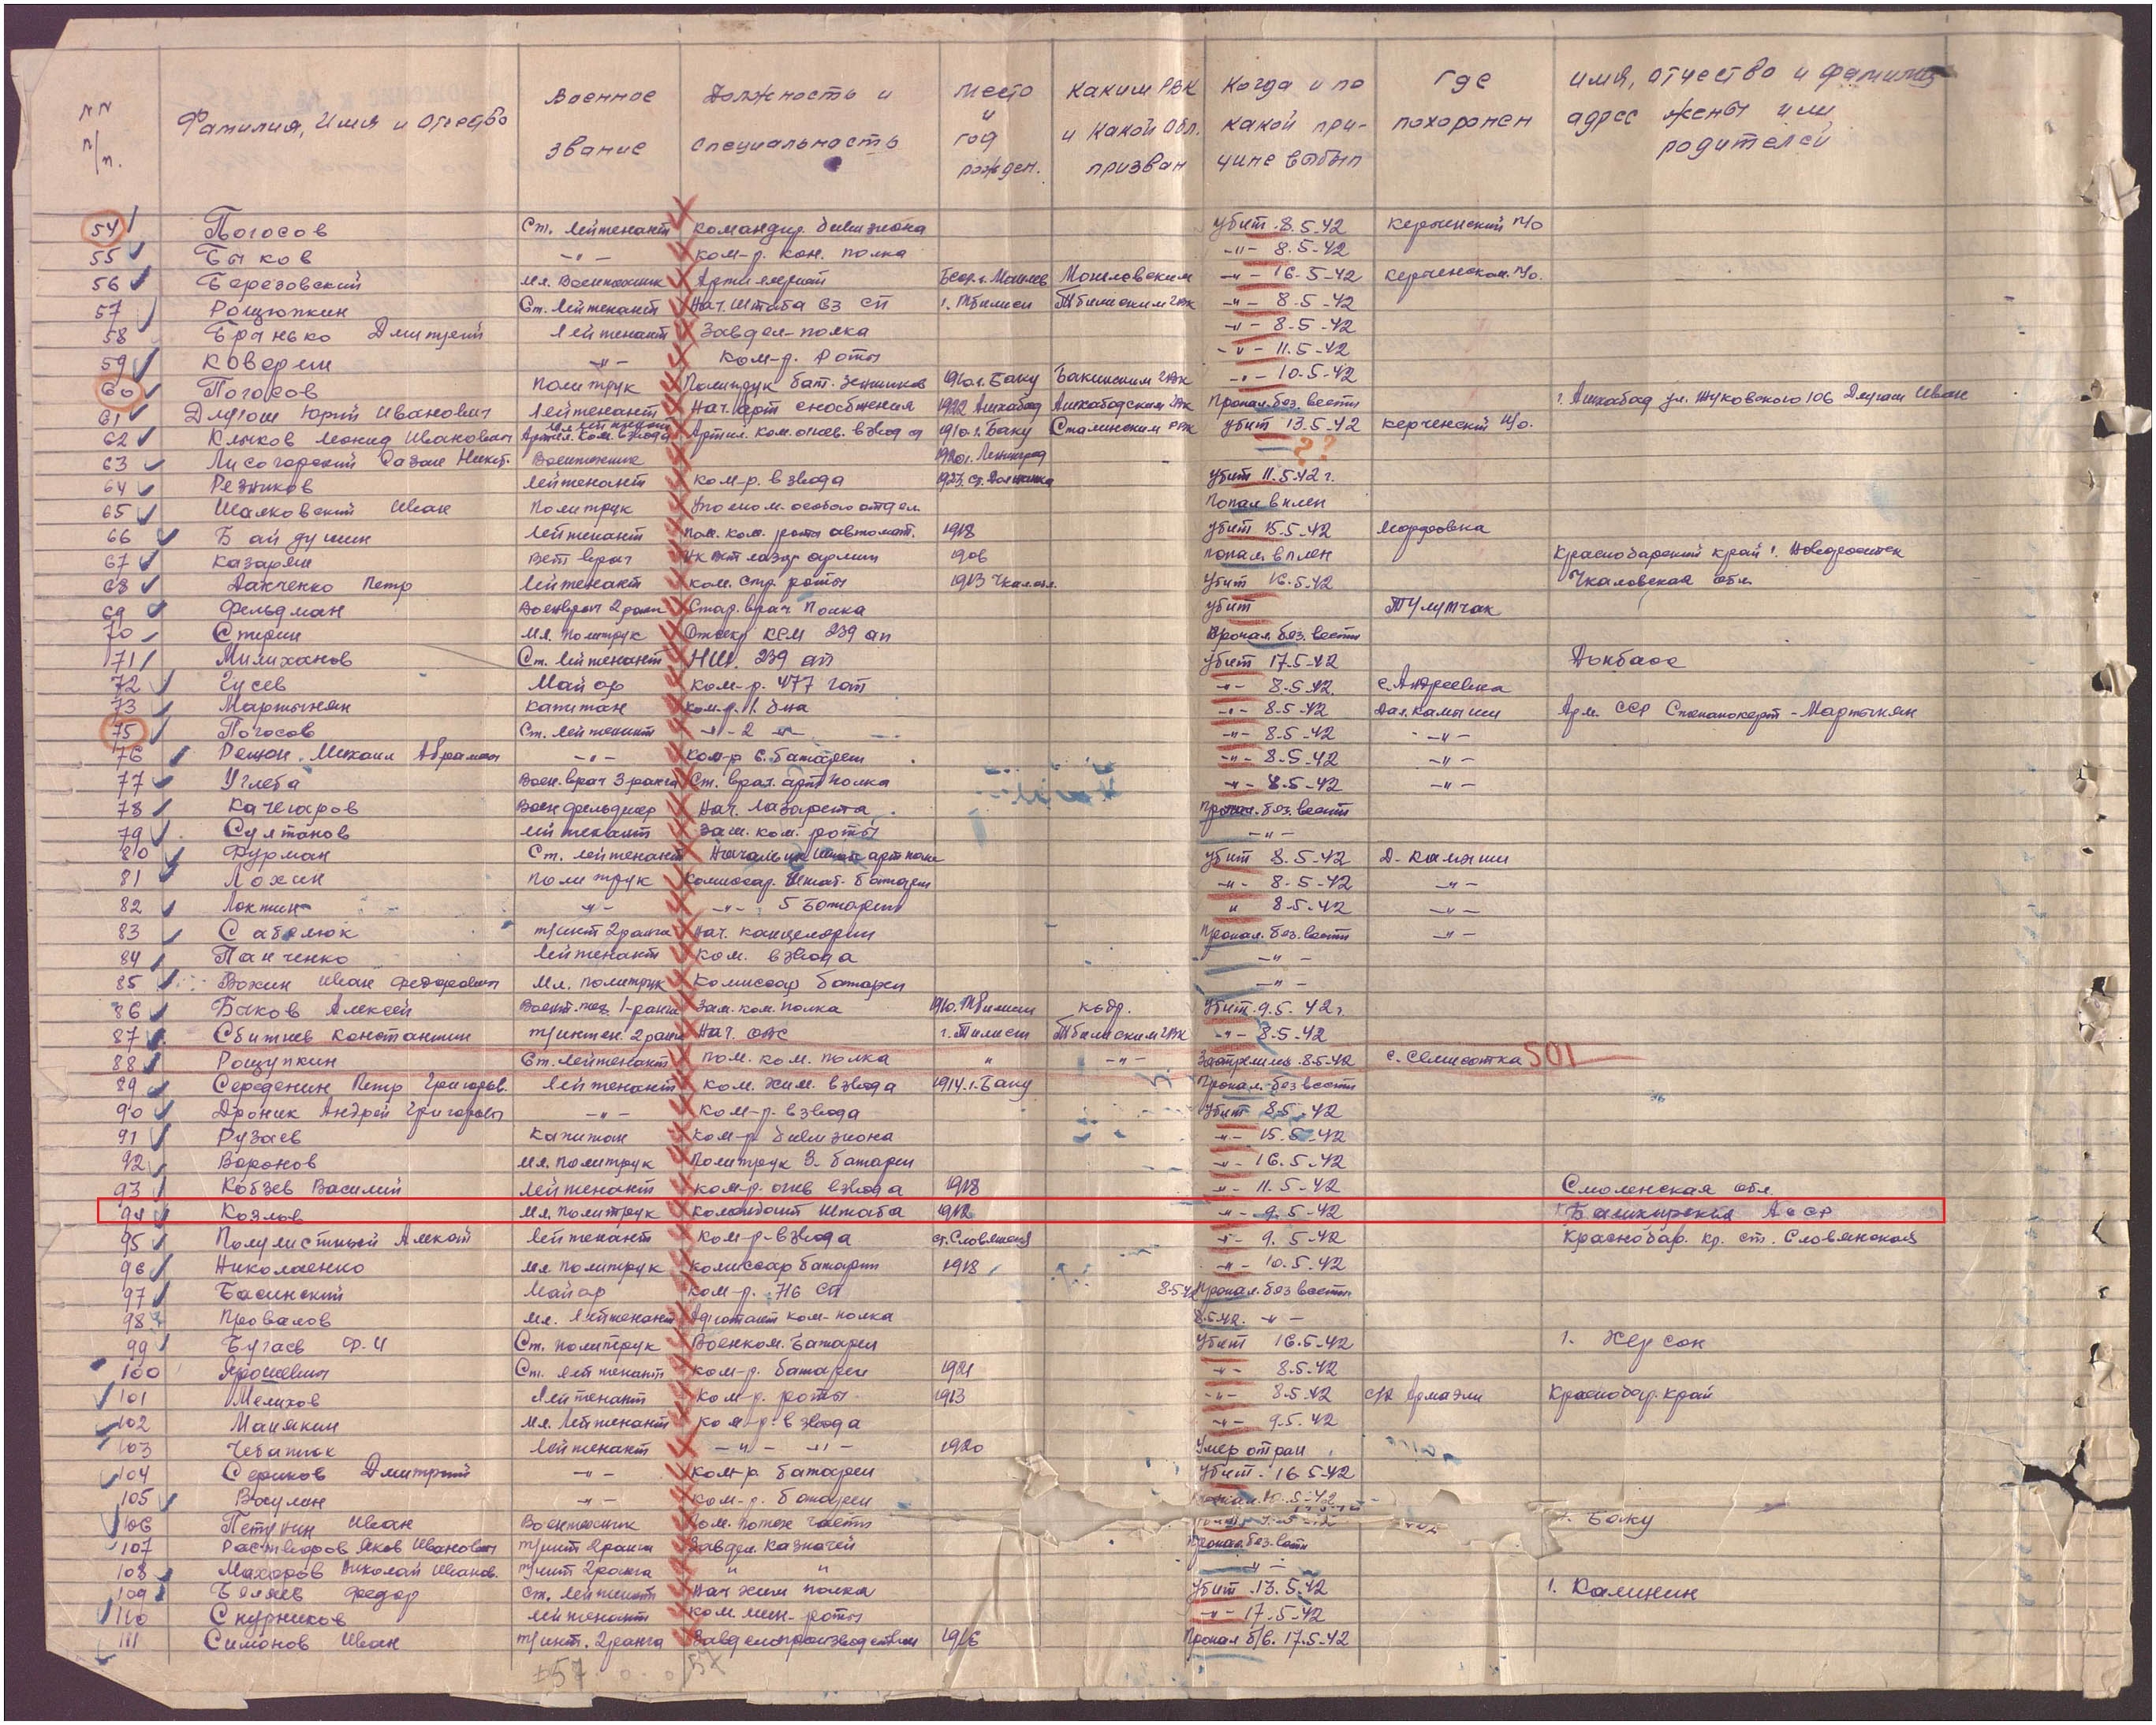 NN п/п. Фамилия, Имя и Отчество Военное звание Должность и специальность Место и год рожден. Каким РВК и какой обл. призван Когда и по какой причине выбыл Где похоронен имя, отчество и фамилия адрес жены или родителей
54 Погосов Ст. Лейтенант командир. дивизиона убит 8.5.42 керченский п/о
55 Быков -"- ком-р. кон. полка -"- 8.5.42
56 Березовский Мл. Воентехник Артиллерий Бсср. г. Могилев Могилевским -"- 16.5.42 керченском п/о.
57 Рощюпкин Ст. Лейтенант Нач. Штаба сп г. Тбилиси Тбилиским ГВК -"- 8.5.42
58 Бранько Дмитрий Лейтенант Завдел-полка -"- 8.5.42
59 Коверин -"- ком-р. Роты -"- 11.5.42
60 Погосов Политрук Политрук бат. 1910 г. Баку Бакинским ГВК -"- 10.5.42
61 Длугош Юрий Иванович Лейтенант Нач. арт снабжения 1922 Ашхабад Ашхабадским ГВК Пропал. без вести г. Ашхабад ул. Жуковского 106 Длугош Иван
62 Клыков Леонид Иванович Артил. ком. взвода Артил. ком. огнев. взвода 1910 г. Баку Сталинским РВК убит 13.5.42 керченский п/о.
63 Лисогорский Воентехник 1920 г. Ленинград ??
64 Резников Лейтенант ком-р. взвода 1923 убит 11.5.42 г.
65 Шалковский Иван Политрук особого отдел. Попал в плен
66 Байдушин Лейтенант пом. ком. роты автомат. 1918 убит 15.5.42 Марфовка
67 Казарян Вет врач лазар армии 1906 попал в плен Краснодарский край г. Новороссийск
68 Данченко Петр Лейтенант ком. стр. роты 1913 Чкал.обл. убит 16.5.42 Чкаловская обл.
69 Фельдман Военврач 2 ранга Стар. врач полка убит Тулумчак
70 Стирин Мл. политрук Отсекр КСМ 239 ап пропал. без. вести
71 Милиханов Ст. Лейтенант НШ. 239 ап убит 17.5.42 Донбасс
72 Гусев Майор ком-р. 477 гап -"- 8.5.42. с. Андреевка
73 Мартынян капитан ком-р. 1. д-на -"- 8.5.42 дол. камыши Арм. ССР Степанокерт - Мартынян
75 Погосов Ст. Лейтенант -"- 2 -"- -"- 8.5.42 -"-
76 Решон Михаил Абрамов -"- ком-р 6. батареи -"- 8.5.42 -"-
77 Углева Воен. врач 3 ранга Ст. врач. арт полка -"- 8.5.42 -"-
78 Качегаров Воен фельдшер Нач. Лазарета пропал. без. вести
79 Султанов лейтенант Зам. ком. роты -"-
80 Фурман Ст. лейтенант Начальник штаба арт полка убит 8.5.42 Д. Камыши
81 Лохин политрук комиссар. Штаб. батареи -"- 8.5.42 -"-
82 Локтин -"- -"- 5 Батареи " 8.5.42 -"-
83 Сабелюк т/инт 2 ранга Нач. канцелярии Пропал. без. вести -"-
84 Панченко Лейтенант ком. взвода -"-
85 Вожин Иван Федорович Мл. политрук Комиссар батареи -"-
86 Быков Алексей Воент.тех. 1-ранга Зам. ком. полка 1910. Тбилиси кадр. Убит. 9.5.42 г.
87 Сбитнев Константин т/интен. 2 ранга Нач. ОВС г. Тбилиси Тбилиским ГВК -"- 8.5.42
88 Рощупкин Ст. Лейтенант пом. ком. полка " -"- Застрелился. 8.5.42 с. Семисотка 501
89 Середенин Петр Григорьев. Лейтенант ком. хим. взвода 1914. г. Баку Пропал. без вести
90 Дроник Андрей Григорьев -"- ком-р. взвода Убит 8.5.42
91 Рузаев капитан ком-р. дивизиона -"- 15.5.42
92 Воронов мл. политрук Политрук 3. батареи -"- 16.5.42
93 Кобзев Василий Лейтенант ком-р. огнев взвода 1918 -"- 11.5.42 Смоленская обл.
94 Козлов Мл. политрук комендант Штаба 1912 -"- 9.5.42 Башкирская АССР
95 Полулистный Алексей Лейтенант ком-р взвода ст. Словянская -"- 9.5.42 Краснодар. кр. ст. Словянской
96 Николаенко мл политрук комиссар батареи 1918 -"- 10.5.42
97 Басинский Майор ком-р. 716 СП 8.5.42 Пропал. без вести.
98 Провалов Мл. Лейтенант Адъютант ком-полка 8.5.42. -"-
99 Бугаев Ф.И Ст. политрук Военком. Батареи Убит 16.5.42 г. Херсон
100 Ярошевич Ст. лейтенант ком-р. батареи 1921 -"- 8.5.42
101 Мелихов Лейтенант Ком-р. роты 1913 -"- 8.5.42 Краснодар. край
102 Манякин Мл. Лейтенант ком-р. взвода -"- 9.5.42
103 Чебанюк Лейтенант -"- -"- 1920 Умер от ран
104 Сериков Дмитрий -"- ком-р. батареи Убит. 16.5.42
105 Ваулин -"- ком-р. батареи
106 Петунин Иван Воентехник г. Баку
107 Растворов Яков Иванович Т/инт 2 ранга Завдел. Казначей Пропал без. вести
108 Махоров Николай Иванов. Т/инт 2 ранга " " -"-
109 Беляев Федор Ст. Лейтенант Нач хим полка Убит. 13.5.42 г. Калинин
110 Скурников Лейтенант ком. мин. роты -"- 17.5.42
111 Симонов Иван т/инт. 2 ранга Завделопроизводством 1916 Пропал б/в. 17.5.42
57 57